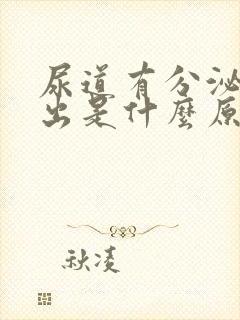 尿道有分泌
出是什麼原
秋凌